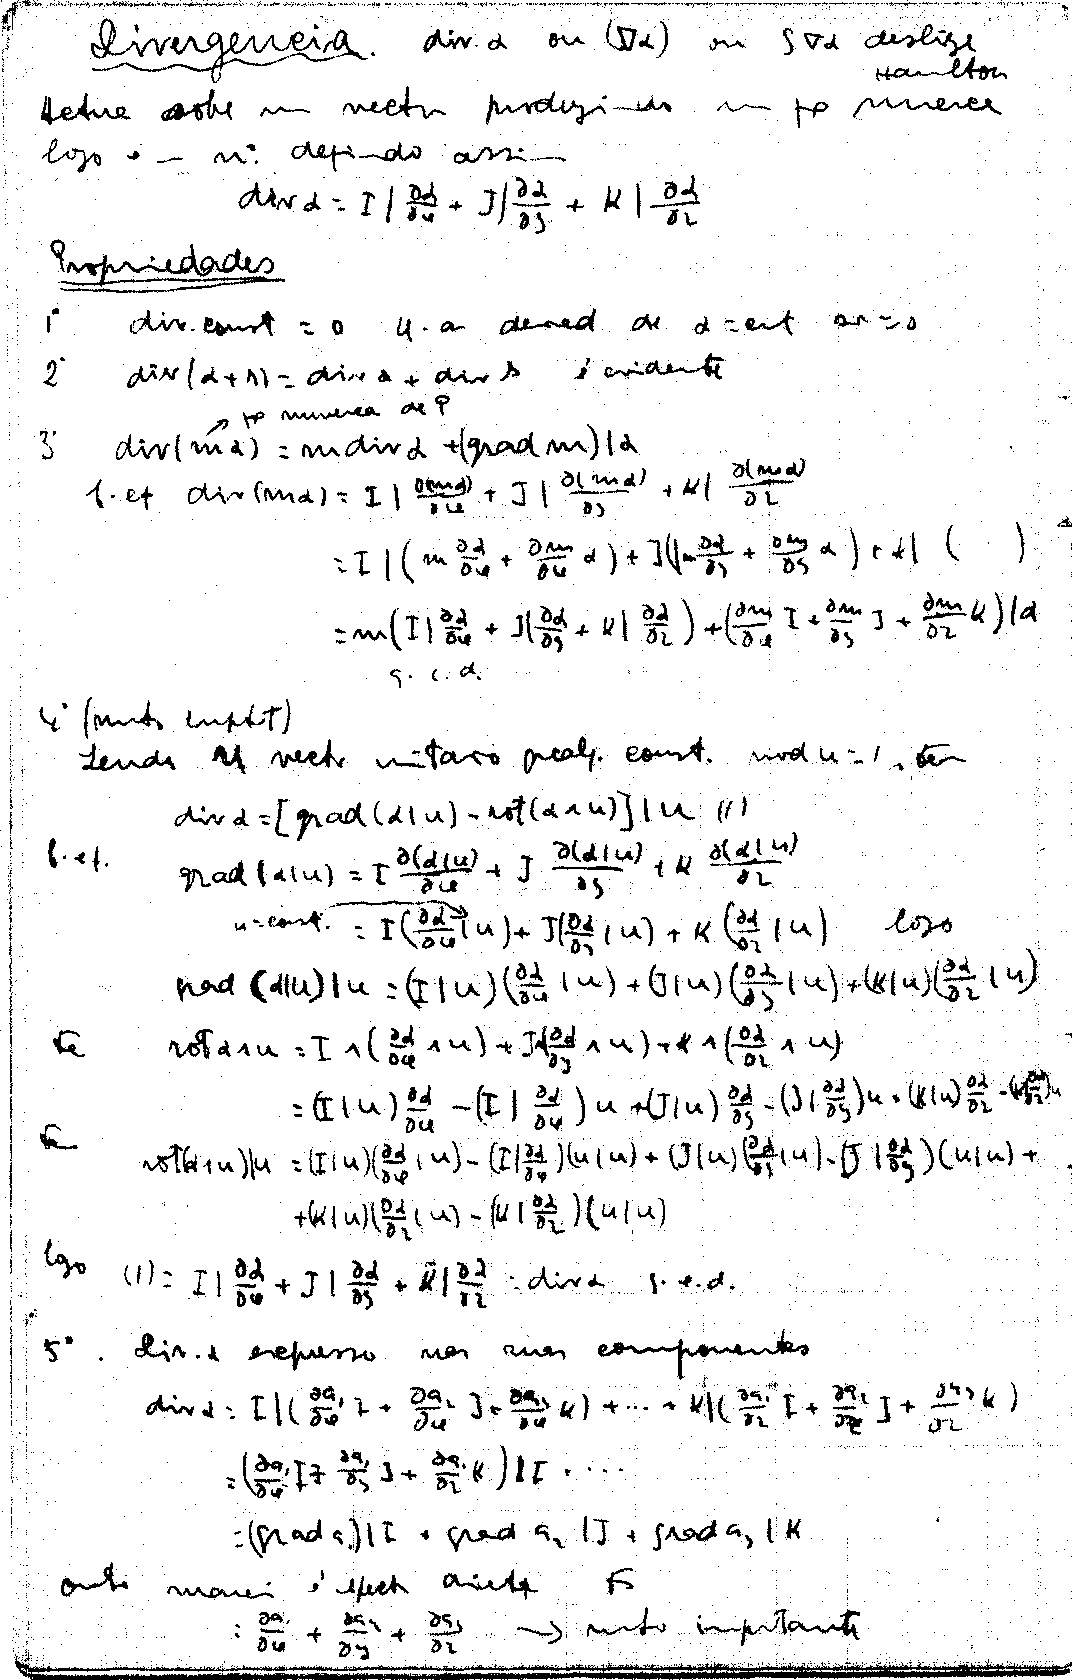 Divergencia. div.α ou (∇α) ou S∇α
Hamilton
Actua sobre um vector produzindo um numerica
logo é um nº. definido assim
div α = I | ∂α/∂x + J | ∂α/∂y + K | ∂α/∂z
Propriedades
1º div. const = 0 de α = const
2º div(α+β) = div α + div β é evidente
numerica de P
3º div(mα) = m div α + (grad m) | α
p. ef div(mα) = I | ∂(mα)/∂x + J | ∂(mα)/∂y + K | ∂(mα)/∂z
= I | (m ∂α/∂x + ∂m/∂x α) + J | (m ∂α/∂y + ∂m/∂y α) + K | ( )
= m(I | ∂α/∂x + J | ∂α/∂y + K | ∂α/∂z) + (∂m/∂x I + ∂m/∂y J + ∂m/∂z K) | α
q. e. d.
4º (muito import)
Sendo u vector unitario const. mod u = 1, tem
div α = [grad(α|u) - rot(α∧u)] | u (1)
p. ef. grad(α|u) = I ∂(α|u)/∂x + J ∂(α|u)/∂y + K ∂(α|u)/∂z
u = const. = I(∂α/∂x | u) + J(∂α/∂y | u) + K(∂α/∂z | u) logo
grad (α|u) | u = (I|u)(∂α/∂x | u) + (J|u)(∂α/∂y | u) + (K|u)(∂α/∂z | u)
rot α∧u = I ∧ (∂α/∂x ∧ u) + J ∧ (∂α/∂y ∧ u) + K ∧ (∂α/∂z ∧ u)
= (I|u) ∂α/∂x - (I | ∂α/∂x) u + (J|u) ∂α/∂y - (J | ∂α/∂y) u + (K|u) ∂α/∂z - (K | ∂α/∂z) u
rot(α∧u)|u = (I|u)(∂α/∂x | u) - (I | ∂α/∂x)(u|u) + (J|u)(∂α/∂y | u) - (J | ∂α/∂y)(u|u) +
+ (K|u)(∂α/∂z | u) - (K | ∂α/∂z)(u|u)
logo (1) = I | ∂α/∂x + J | ∂α/∂y + K | ∂α/∂z = div α q. e. d.
5º. Div. α expresso nas suas componentes
div α = I | (∂a₁/∂x I + ∂a₂/∂x J + ∂a₃/∂x K) + ... + K | (∂a₁/∂z I + ∂a₂/∂z J + ∂a₃/∂z K)
= (∂a₁/∂x I + ∂a₁/∂y J + ∂a₁/∂z K) | I + ....
= (grad a₁) | I + grad a₂ | J + grad a₃ | K
outra maneira é
= ∂a₁/∂x + ∂a₂/∂y + ∂a₃/∂z → muito importante